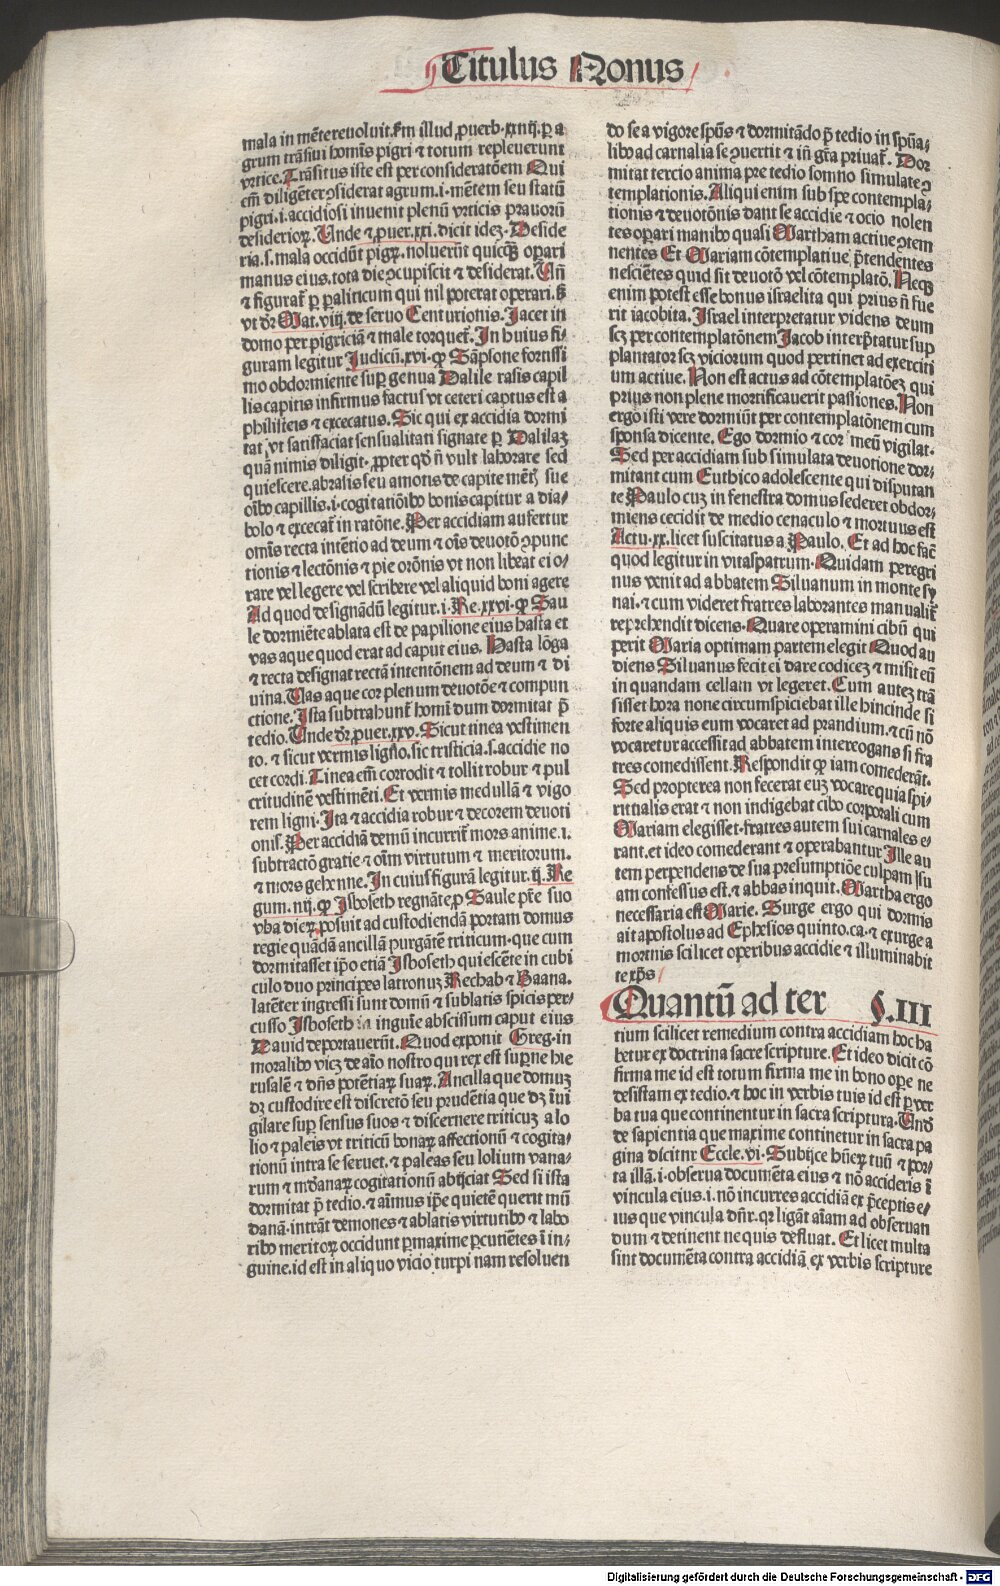 Titulus Nonus
mala in mẽte reuoluit. ẜm illud ꝓuerb. xxiiij. ꝑ a
grum trãsiui homĩs pigri ⁊ totum repleuerunt
vrtice. Trãsitus iste est per consideratõem Qui
em̃ diligẽter ꝯsiderat agrum .i. mẽtem seu statũ
pigri .i. accidiosi inuenit plenũ vrticis prauorũ
desiderioꝝ. Unde ⁊ ꝓuer. xxi. dicit ideꝫ. Deside
ria .s. mala occidũt pigꝝ. noluerũt quicꝙ̃ oꝑari
manus eius. tota die ꝯcupiscit ⁊ desiderat. Uñ
⁊ figurat̃ ꝑ ꝑaliticum qui nil poterat operari. ẜ
vt dr̃ Mat. viij. de seruo Centurionis. Jacet in
domo per pigriciã ⁊ male torquet̃. In huius fi-
guram legitur Judicũ. xvi. ꝙ Sãpsone fortissi
mo obdormiente suꝑ genua Dalile rasis capil
lis capitis infirmus factus vt ceteri captus est a
philisteis ⁊ excecatus. Sic qui ex accidia dormi
tat, vt satisfaciat sensualitati signate ꝑ Dalilaꝫ
quã nimis diligit. ꝓpter qd̃ ñ vult laborare sed
quiescere. abrasis seu amotis de capite mẽtꝭ sue
oĩbꝰ capillis .i. cogitatiõibꝰ bonis capitur a dia-
bolo ⁊ excecat̃ in ratõne. Per accidiam aufertur
omĩs recta intẽtio ad deum ⁊ oĩs deuotõ ꝯpunc
tionis ⁊ lectõnis ⁊ pie orõnis vt non libeat ei o-
rare vel legere vel scribere vel aliquid boni agere
Ad quod designãdũ legitur. i. Re. xxvi. ꝙ Sau
le dormiẽte ablata est de papilione eius hasta et
vas aque quod erat ad caput eius. Hasta lõga
⁊ recta designat rectã intentõnem ad deum ⁊ di
uina. Uas aque cor plenum deuotõe ⁊ compun
ctione. Ista subtrahunt̃ homĩ dum dormitat p̃
tedio. Unde dr̃ ꝓuer. xxv. Sicut tinea vestimen
to. ⁊ sicut vermis ligno. sic tristicia .s. accidie no
cet cordi. Tinea em̃ corrodit ⁊ tollit robur ⁊ pul
critudinẽ vestimẽti. Et vermis medullã ⁊ vigo
rem ligni. Ita ⁊ accidia robur ⁊ decorem deuoti
onis. Per accidiã demũ incurrit̃ mors anime .i.
subtractõ gratie ⁊ oĩm virtutum ⁊ meritorum.
⁊ mors gehenne. In cuius figurã legitur. ij. Re
gum. iiij. ꝙ Isboseth regnãte ꝓ Saule pr̃e suo
vba dieꝝ posuit ad custodiendã portam domus
regie quãdã ancillã purgãtẽ triticum. que cum
dormitasset ip̃o etiã Isboseth quiescẽte in cubi
culo duo principes latronuꝫ Rechab ⁊ Baana.
latẽter ingressi sunt domũ ⁊ sublatis spicis per-
cusso Isboseth in inguĩe abscissum caput eius
Dauid deportauerũt. Quod exponit Greg. in
moralibꝰ vicꝫ de aĩo nostro qui rex est suꝑne hie
rusalẽ ⁊ dñs potẽtiaꝝ suaꝝ. Ancilla que domuꝫ
dꝫ custodire est discretõ seu prudẽtia que dꝫ ĩui
gilare suꝑ sensus suos ⁊ discernere triticuꝫ a lo
lio ⁊ paleis vt triticũ bonaꝝ affectionũ ⁊ cogita-
tionũ intra se seruet. ⁊ paleas seu lolium vana-
rum ⁊ mũdanaꝝ cogitationũ abijciat Sed si ista
dormitat p̃ tedio. ⁊ aĩmus ip̃e quietẽ querit mũ
danã. intrãt demones ⁊ ablatis virtutibꝰ ⁊ labo
ribꝰ meritoꝝ occidunt ꝑmaxime ꝑcutiẽtes ĩ in-
guine. id est in aliquo vicio turpi nam resoluen
do se a vigore spũs ⁊ dormitãdo p̃ tedio in spũa-
libꝰ ad carnalia se ꝯuertit ⁊ iñ gr̃a priuat̃. Dor
mitat tercio anima pre tedio somno simulate ꝯ
templationis. Aliqui enim sub spe contempla-
tionis ⁊ deuotõnis dant se accidie ⁊ ocio nolen
tes oꝑari manibꝰ quasi Martham actiue ꝯtem
nentes Et Mariam cõtemplatiue p̃tendentes
nesciẽtes quid sit deuotõ vel cõtemplatõ. Necꝙ
enim potest esse bonus israelita qui prius ñ fue
rit iacobita. Israel interpretatur videns deum
scꝫ per contemplatõnem Jacob interp̃tatur sup
plantator scꝫ viciorum quod pertinet ad exerciti
um actiue. Non est actus ad cõtemplatõeꝫ qui
prius non plene mortificauerit passiones. Non
ergo isti vere dormiũt per contemplatõnem cum
sponsa dicente. Ego dormio ⁊ cor meũ vigilat.
Sed per accidiam sub simulata deuotione dor-
mitant cum Euthico adolescente qui disputan
te Paulo cuꝫ in fenestra domus sederet obdor-
miens cecidit de medio cenaculo ⁊ mortuus est
Actu. xx. licet suscitatus a Paulo. Et ad hoc fac̃
quod legitur in vitaspatrum. Quidam peregri
nus venit ad abbatem Siluanum in monte sy
nai. ⁊ cum videret fratres laborantes manualit̃
reprehendit dicens. Quare operamini cibũ qui
perit Maria optimam partem elegit Quod au
diens Siluanus fecit ei dare codiceꝫ ⁊ misit eũ
in quandam cellam vt legeret. Cum auteꝫ trã
sisset hora none circumspiciebat ille hincinde si
forte aliquis eum vocaret ad prandium. ⁊ cũ nõ
vocaretur accessit ad abbatem interrogans si fra
tres comedissent. Respondit ꝙ iam comederãt.
Sed propterea non fecerat euꝫ vocare quia spi-
ritualis erat ⁊ non indigebat cibo corporali cum
Mariam elegisset. fratres autem sui carnales e-
rant. et ideo comederant ⁊ operabantur Ille au
tem perpendens de sua presumptiõe culpam su
am confessus est. ⁊ abbas inquit. Martha ergo
necessaria est Marie. Surge ergo qui dormis
ait apostolus ad Ephesios quinto. ca. ⁊ exurge a
mortuis scilicet operibus accidie ⁊ illuminabit
te xp̃s
Quantũ ad ter §. III
tium scilicet remedium contra accidiam hoc ha
betur ex doctrina sacre scripture. Et ideo dicit cõ
firma me id est totum firma me in bono oꝑe ne
desistam ex tedio. ⁊ hoc in verbis tuis id est ꝑ ver
ba tua que continentur in sacra scriptura. Und̃
de sapientia que maxime continetur in sacra pa
gina dicitur Eccle. vi. Subijce hũeꝝ tuũ ⁊ por-
ta illã .i. obserua documẽta eius ⁊ nõ accideris ĩ
vincula eius .i. nõ incurres accidiã ex p̃ceptis e-
ius que vincula dñr. qꝛ ligãt aĩam ad obseruan
dum ⁊ detinent ne quis defluat. Et licet multa
sint documẽta contra accidiã ex verbis scripture
Digitalisierung gefördert durch die Deutsche Forschungsgemeinschaft - DFG